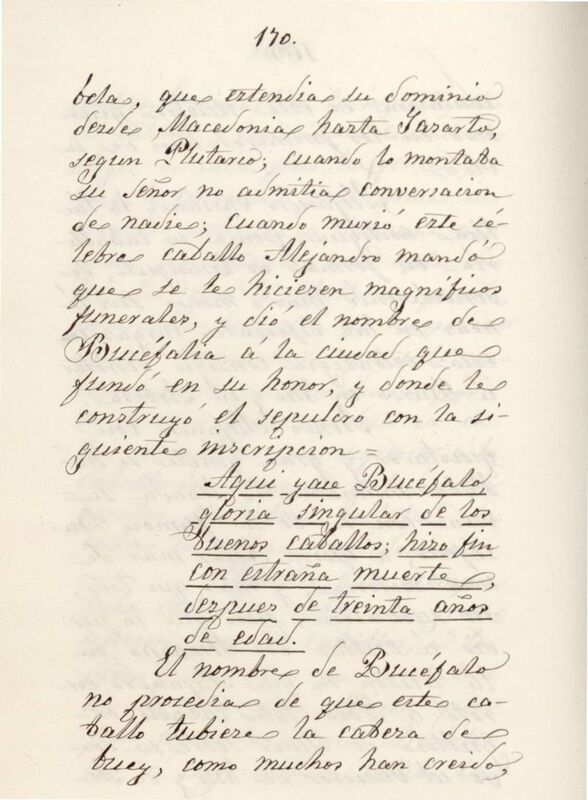 170.
bela, que estendia su dominio
desde Macedonia hasta Jasarto,
segun Plutarco; cuando lo montaba
su señor no admitia conversacion
de nadie; cuando murió este cé-
lebre caballo Alejandro mandó
que se le hiciesen magníficos
funerales, y dió el nombre de
Bucéfalia á la ciudad que
fundó en su honor, y donde le
construyó el sepulcro con la si-
guiente inscripcion =
Aqui yace Bucéfalo,
gloria singular de los
buenos caballos; hizo fin
con estraña muerte,
despues de treinta años
de edad.
El nombre de Bucéfalo
no prosedia de que este ca-
ballo tubiese la cabeza de
buey, como muchos han creido,